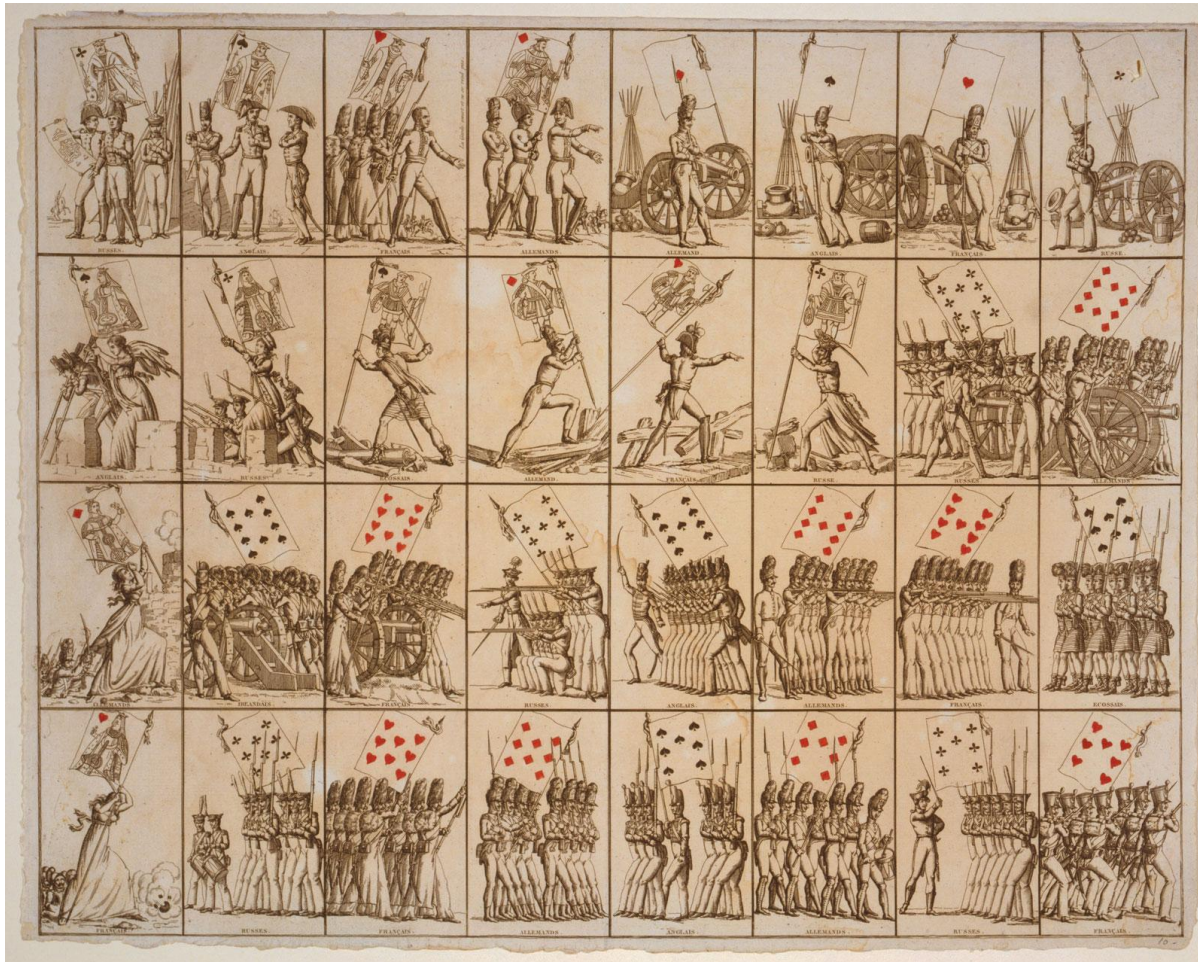 RUSSES.
ANGLAIS.
FRANÇAIS.
ALLEMANDS.
ALLEMAND.
ANGLAIS.
FRANÇAIS.
RUSSE.
ANGLAIS.
RUSSES.
ECOSSAIS.
ALLEMAND.
FRANÇAIS.
RUSSE.
RUSSES.
ALLEMANDS.
ALLEMANDS.
IRLANDAIS.
FRANÇAIS.
RUSSES.
ANGLAIS.
ALLEMANDS.
FRANÇAIS.
ECOSSAIS.
FRANÇAIS.
RUSSES.
FRANÇAIS.
ALLEMANDS.
ANGLAIS.
ALLEMANDS.
RUSSES.
FRANÇAIS.
10 -